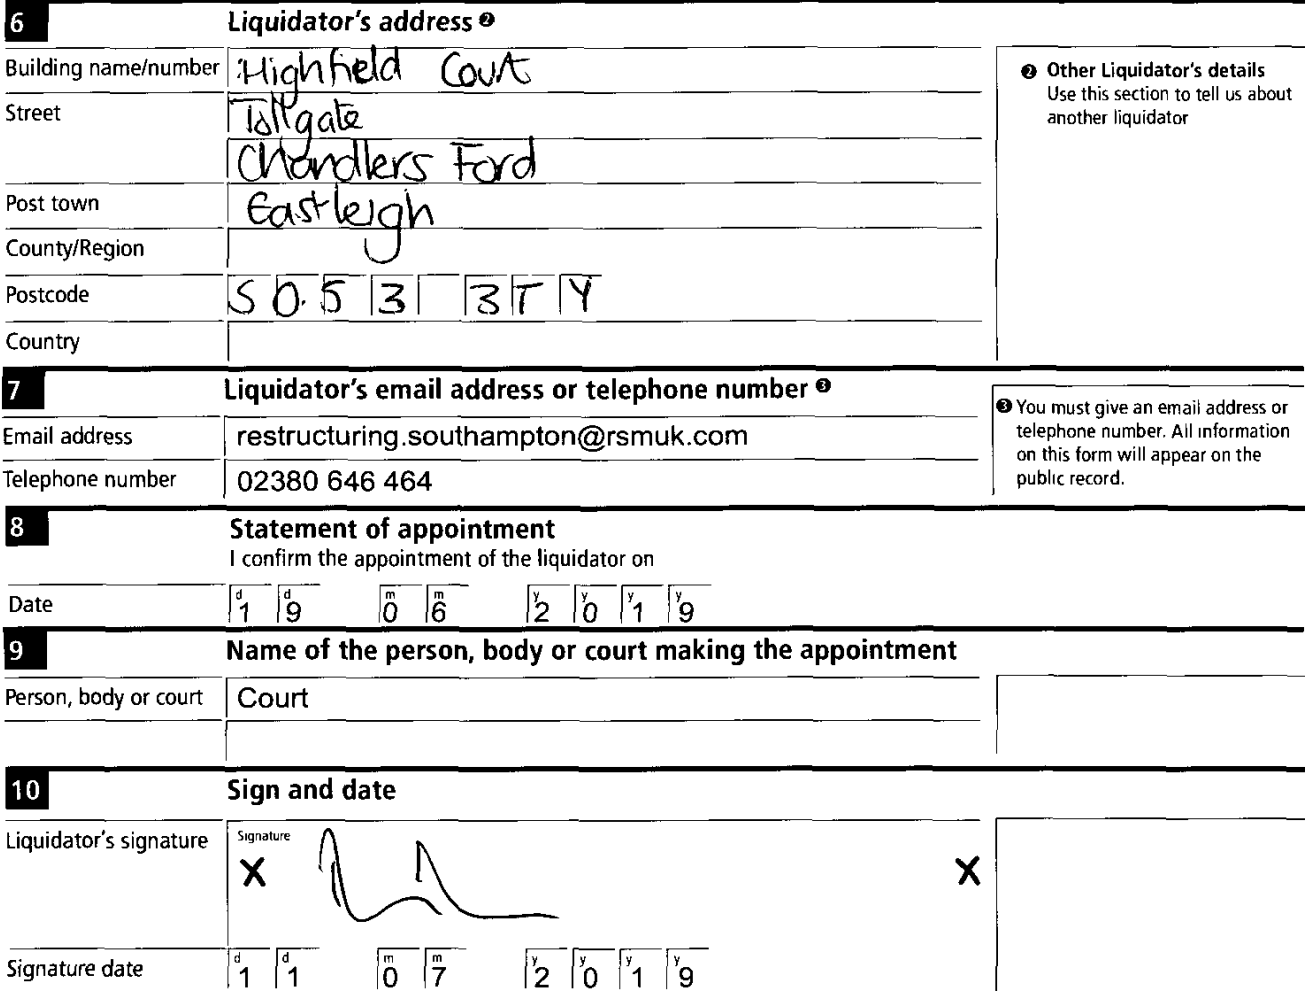 6 Liquidator's address ❷
Building name/number Highfield Court
Street Tollgate
Chandlers Ford
Post town Eastleigh
County/Region
Postcode S O 5 3 3 T Y
Country
❷ Other Liquidator's details
Use this section to tell us about
another liquidator
7 Liquidator's email address or telephone number ❸
Email address restructuring.southampton@rsmuk.com
Telephone number 02380 646 464
❸ You must give an email address or
telephone number. All information
on this form will appear on the
public record.
8 Statement of appointment
I confirm the appointment of the liquidator on
d d m m y y y y
Date 1 9 0 6 2 0 1 9
9 Name of the person, body or court making the appointment
Person, body or court Court
10 Sign and date
Liquidator's signature Signature
X X
d d m m y y y y
Signature date 1 1 0 7 2 0 1 9